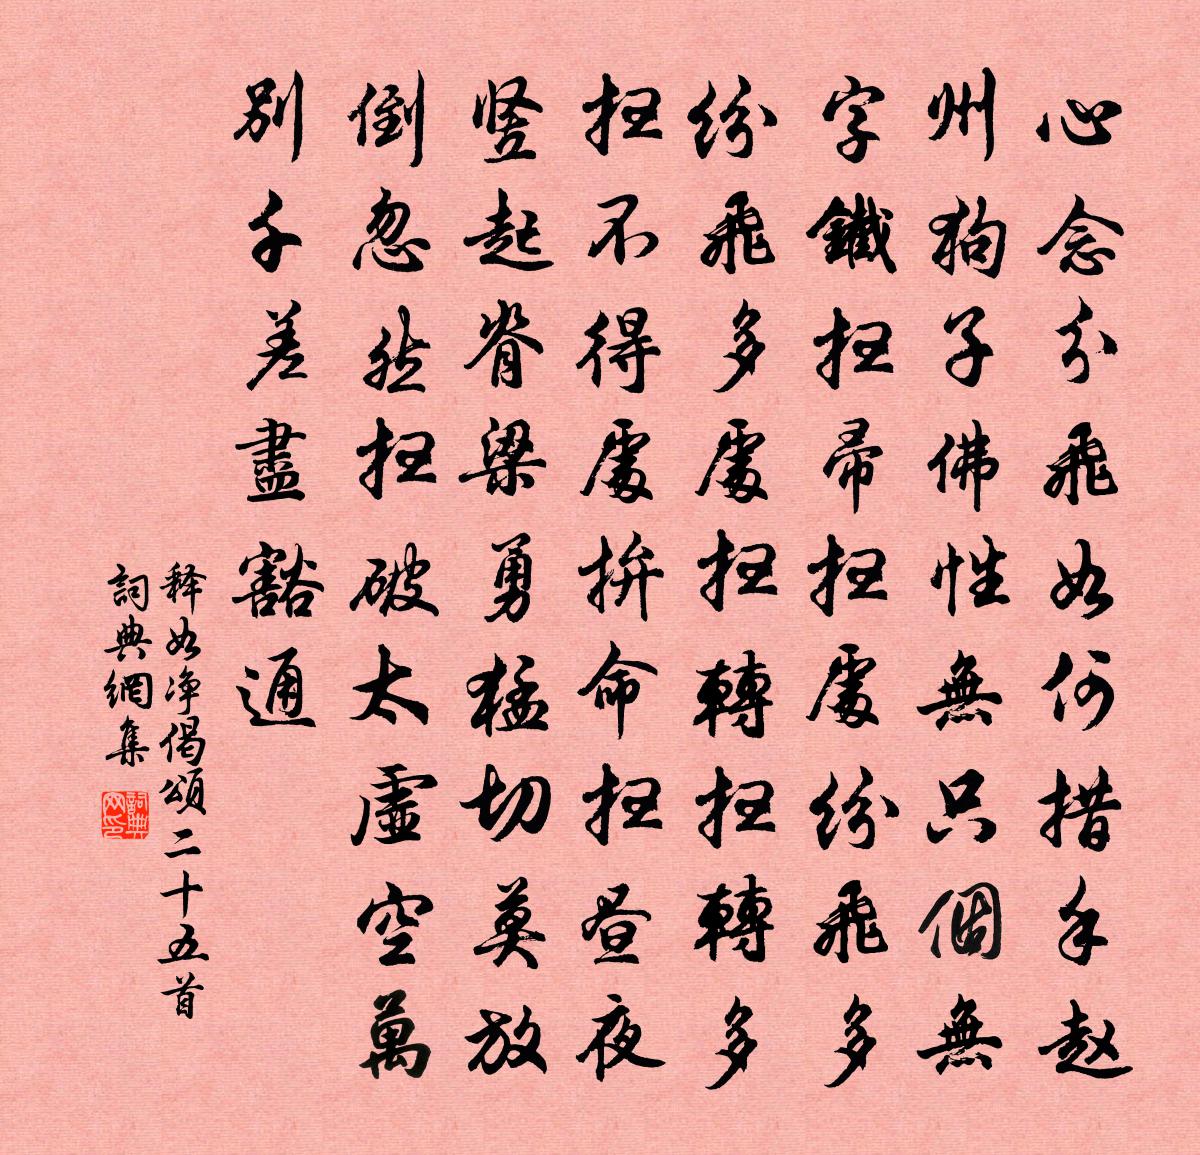 心念分飛如何措手赵
州狗子佛性無只個無
字鐵扫帚扫處紛飛多
紛飛多處扫轉扫轉多
扫不得處拚命扫昼夜
竖起脊梁勇猛切莫放
倒忽然扫破太虛空萬
别千差盡豁通
释如净偈頌二十五首
詞典網集
詞典网印